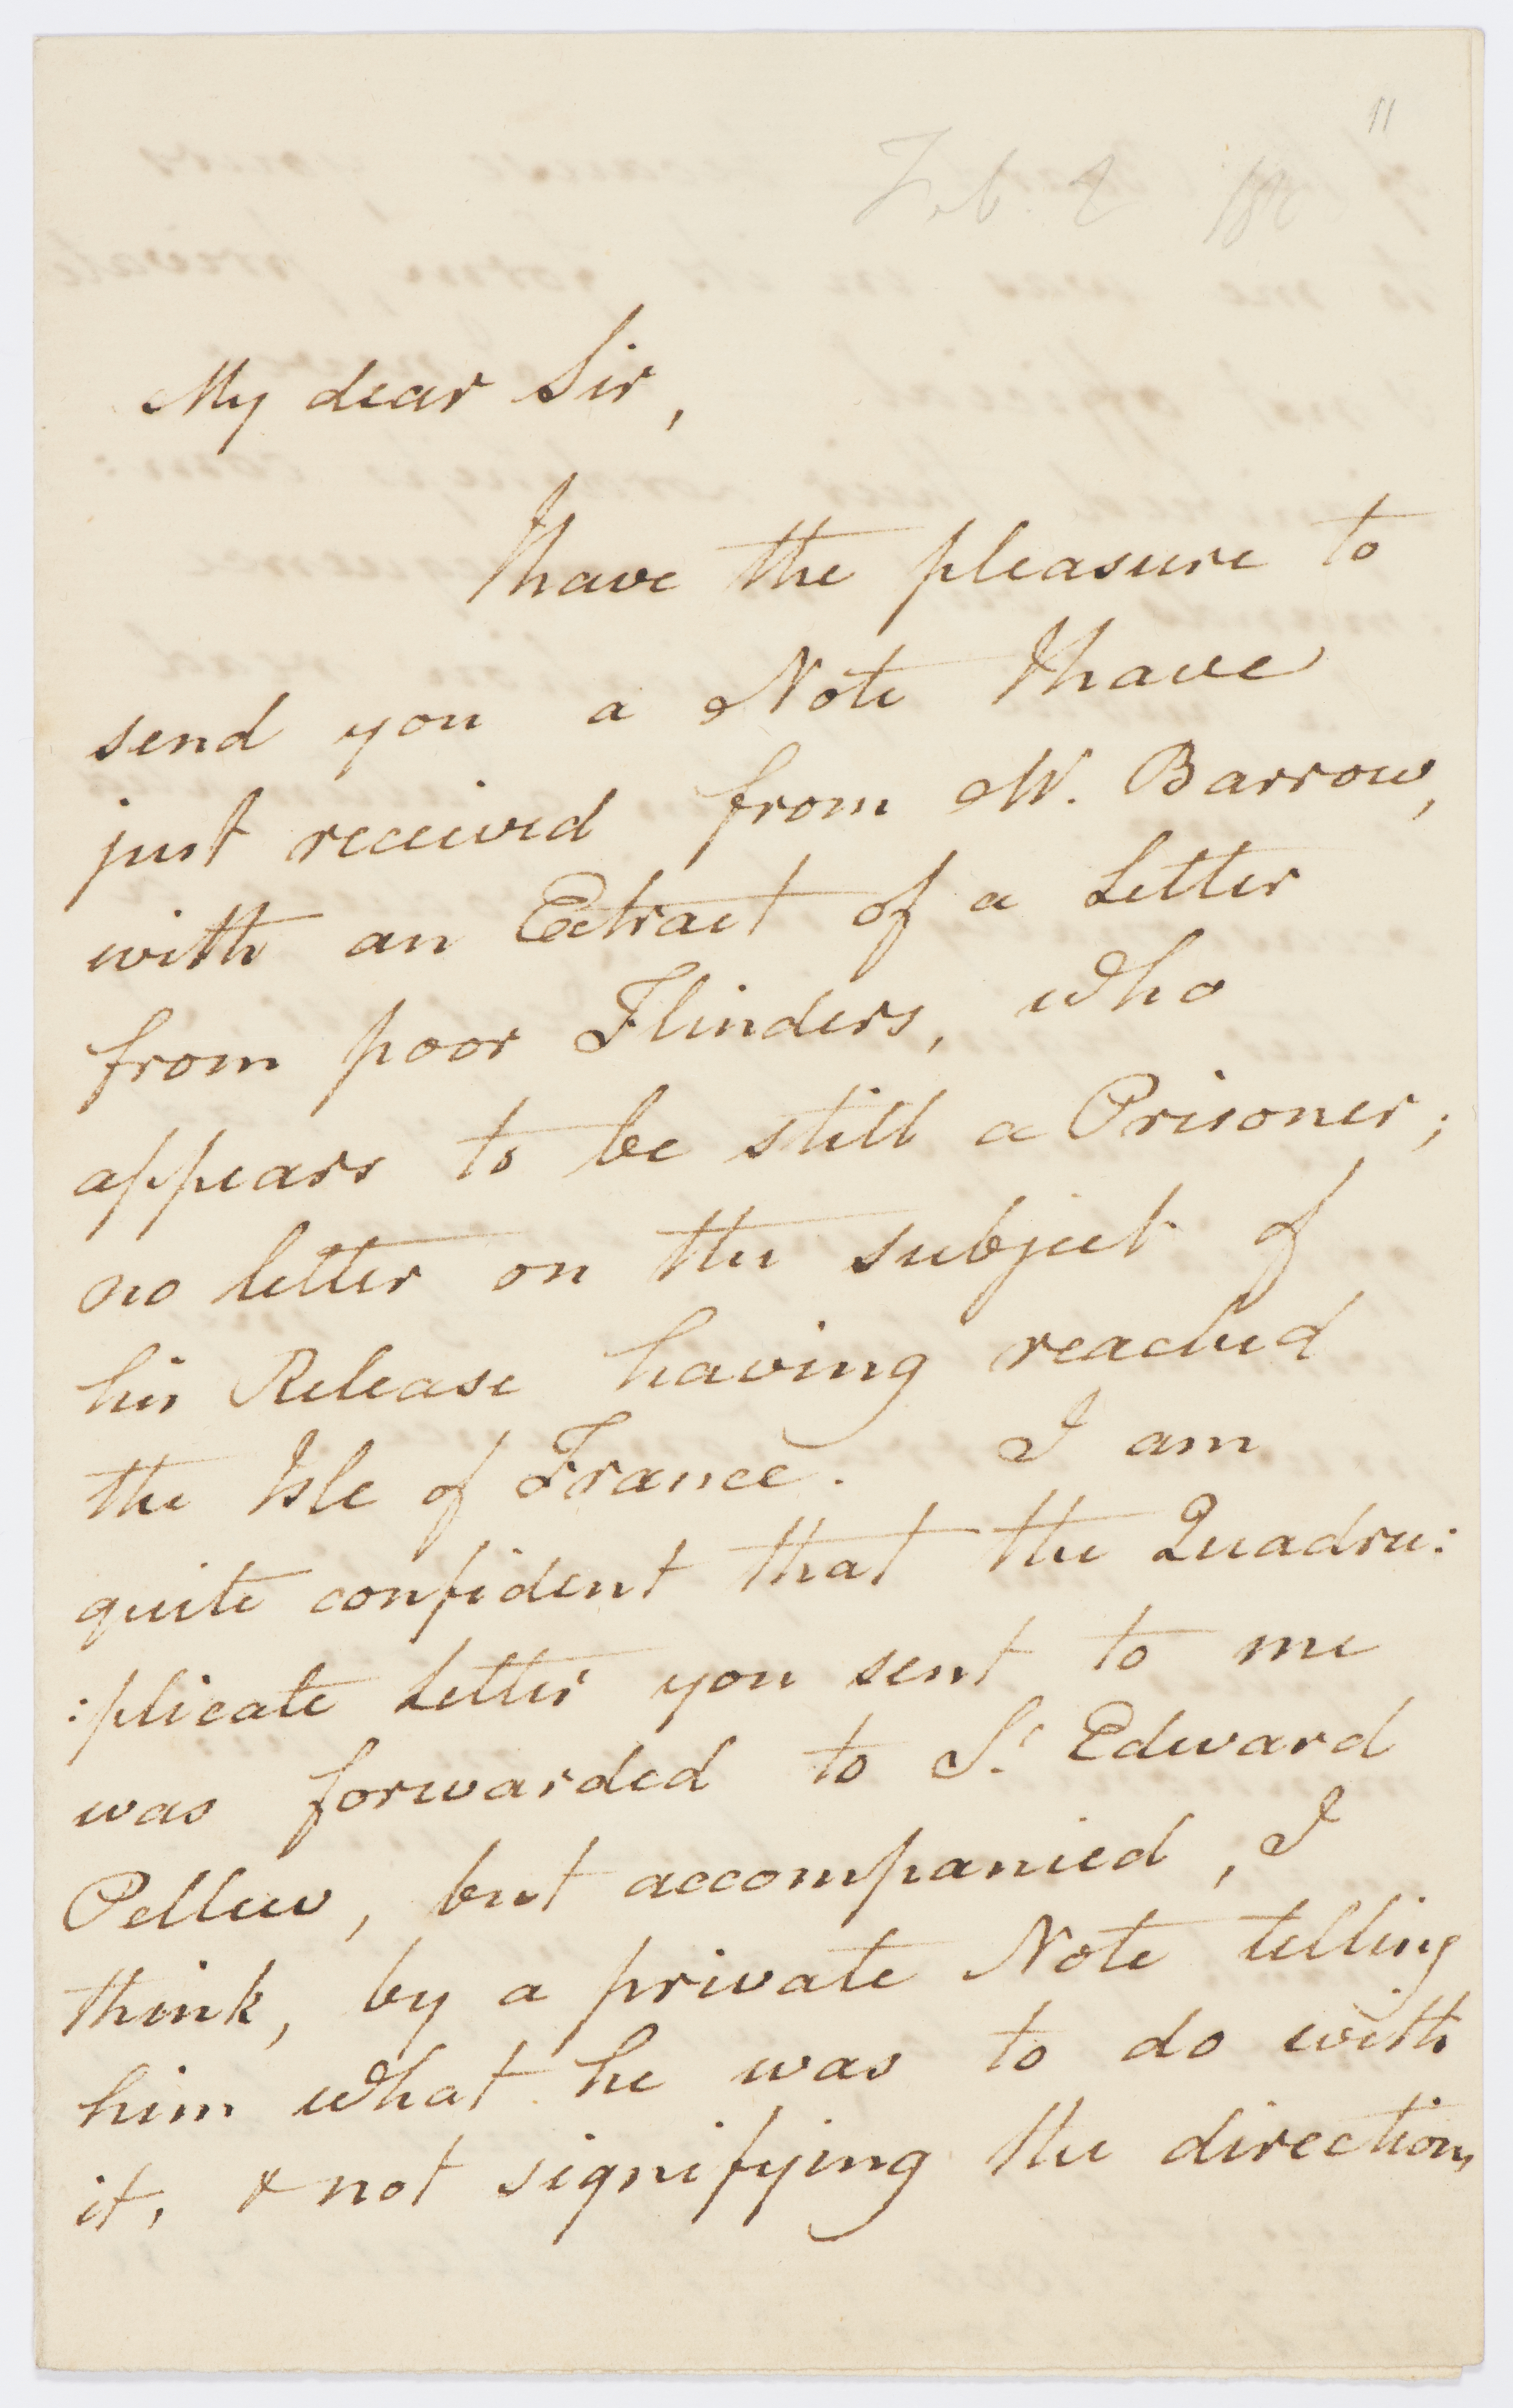 11
Feb. 2 180
My dear Sir,
I have the pleasure to
send you a Note I have
just received from Mr. Barrow,
with an Extract of a Letter
from poor Flinders, who
appears to be still a Prisoner;
no letter on the subject of
his Release having reached
the Isle of France. I am
quite confident that the Quadru:
:plicate Letter you sent to me
was forwarded to Sr. Edward
Pellew, but accompanied, I
think, by a private Note telling
him what he was to do with
it, & not signifying the direction,